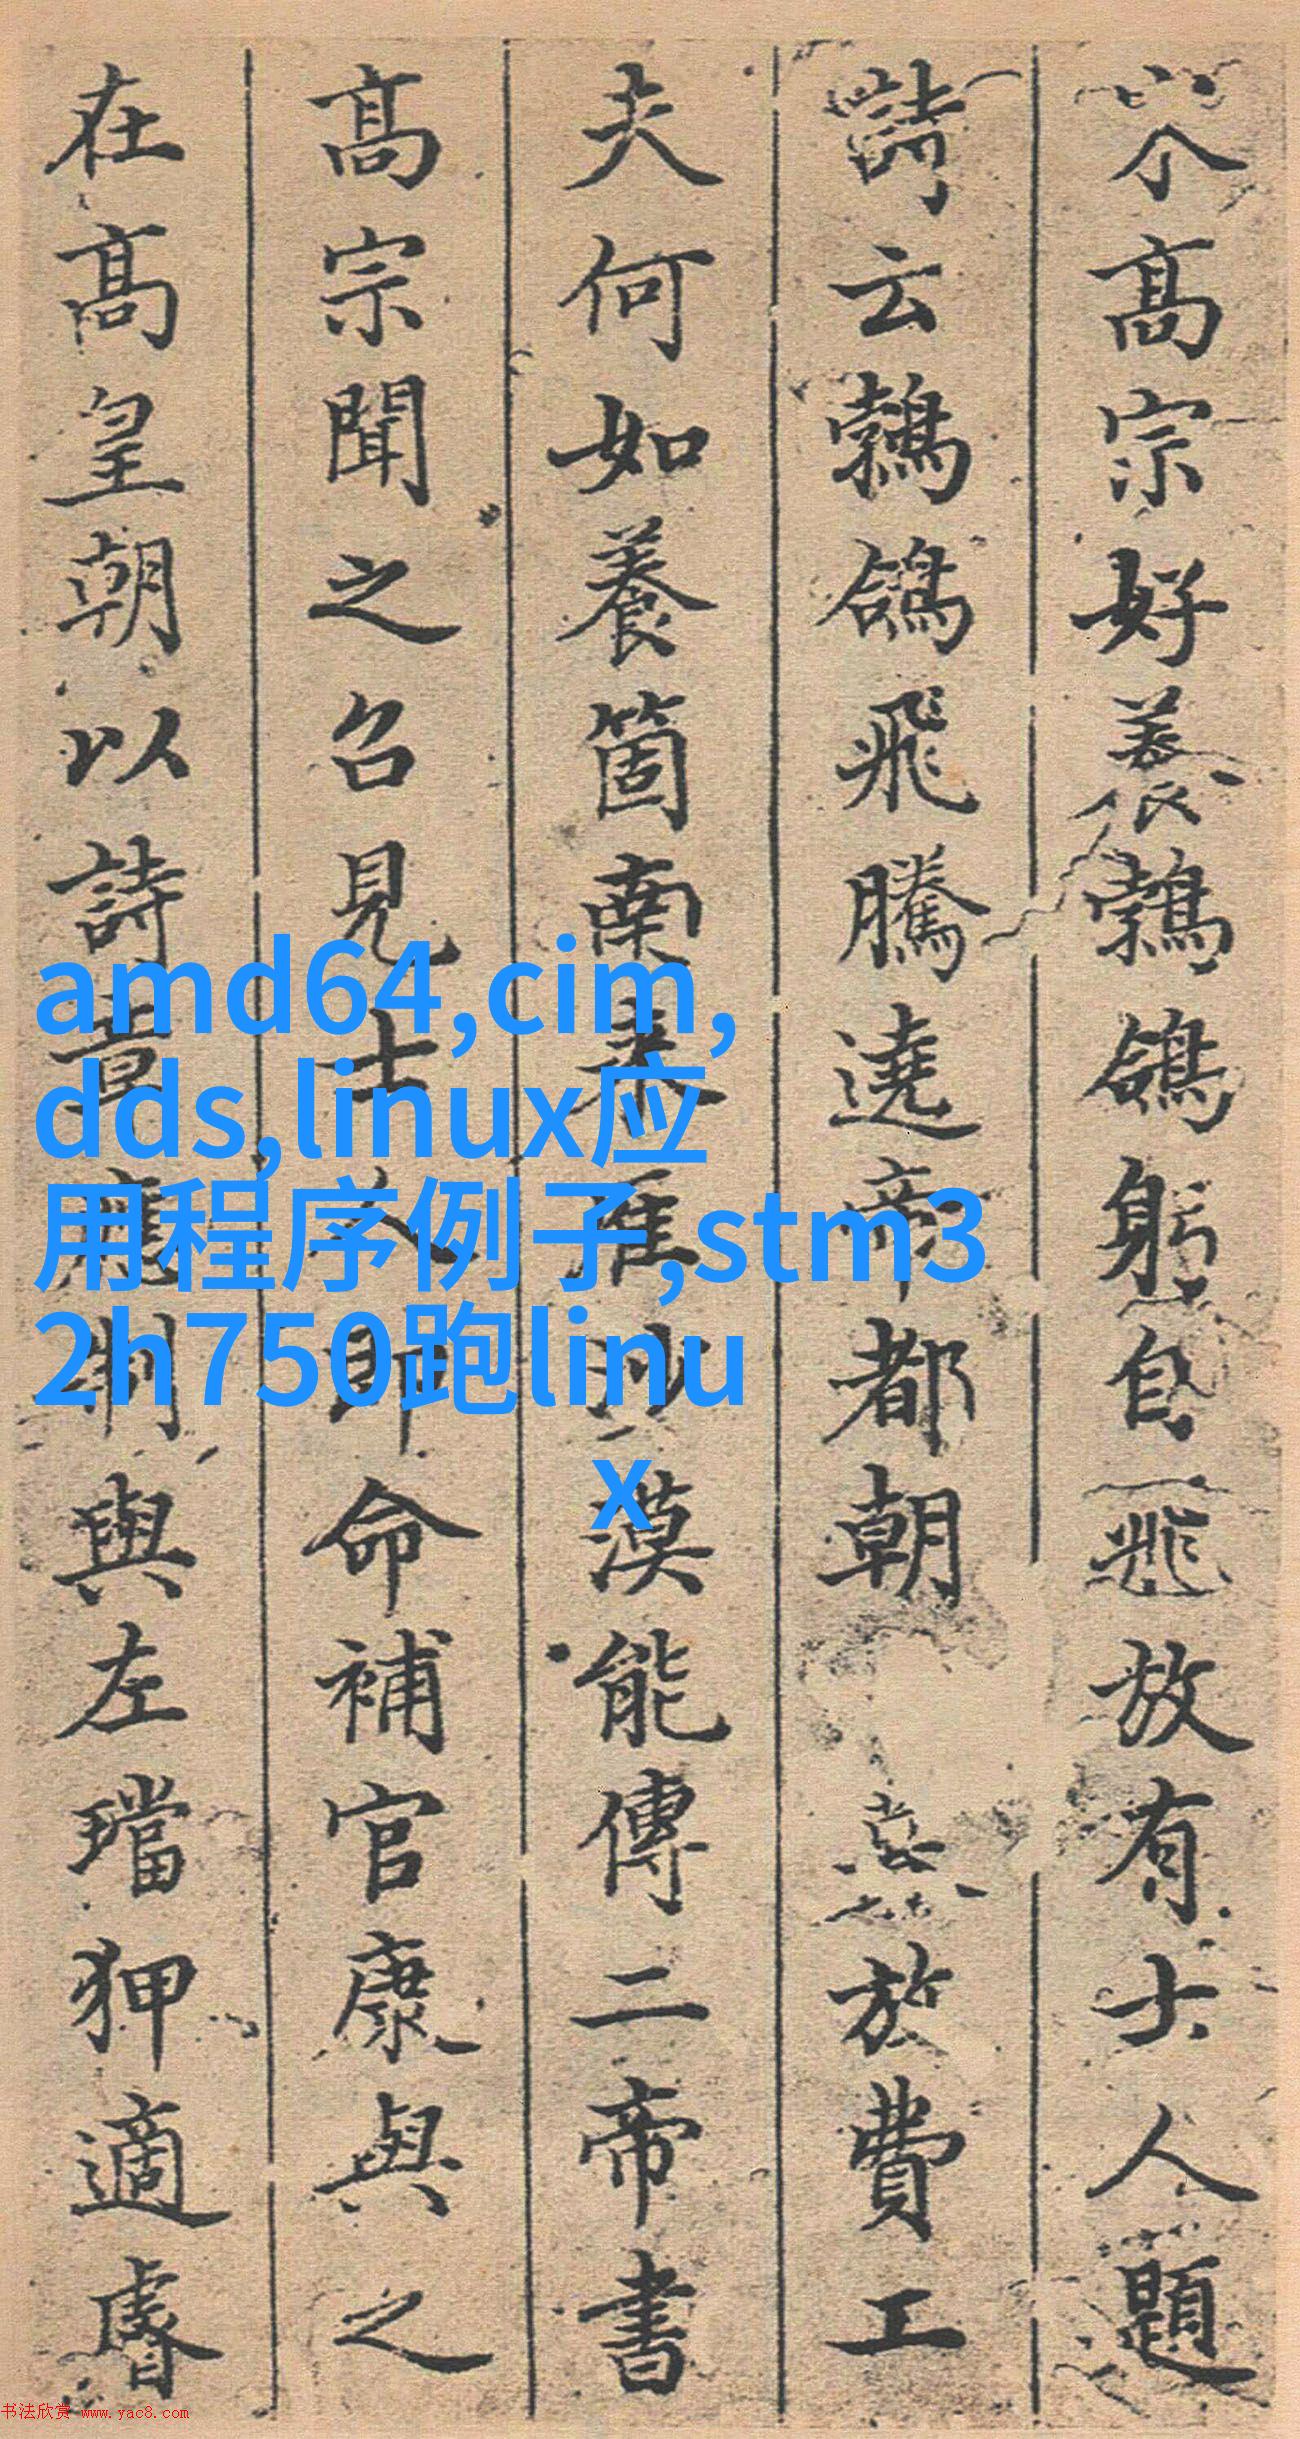 高宗好養鶉鴿躬自飛放有士人題
詩云鶉鴿飛騰遶帝都朝於費工
夫何如養箇南來沙漠能傳二帝書
高宗聞之召見士人即命補官康與之
在高皇朝以詩章應制與左璫狎適睿
amd64,cim,
dds,linux应
用程序例子,stm3
2h750跑linu
x
书法欣赏 www.yac8.com